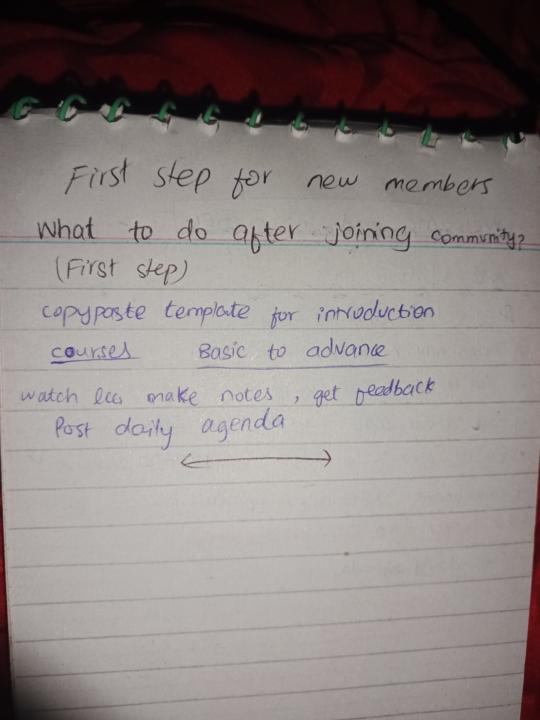 First step for new members
What to do after joining community?
(First step)
copypaste template for introduction
courses Basic to advance
watch lec make notes, get feedback
Post daily agenda